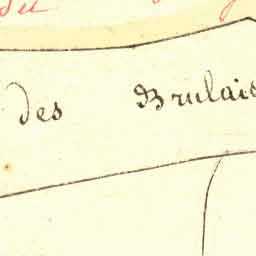 des Brulais